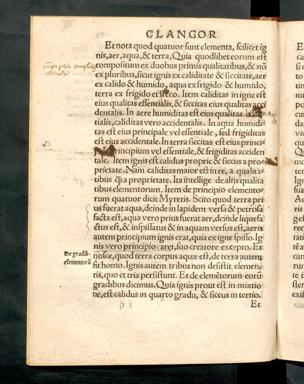 CLANGOR
Et nota quod quatuor sunt elementa, scilicet ig
nis, aer, aqua, & terra, Quia quodlibet eorum est
compositum ex duobus primis qualitatibus, & nō
ex pluribus, sicut ignis ex caliditate & siccitate, aer
ex calido & humido, aqua ex frigido & humido,
terra ex frigido et sicco. Item caliditas in igne est
eius qualitas essentialis, & siccitas eius qualitas acci
dentalis. In aere humiditas est eius qualitas
tialis, caliditas vero accidentalis. In aqua humidi
tas est eius principale vel essentiale, sed frigiditas
est eius accidentale. In terra siccitas est eius princi
principium vel essentiale, & frigiditas acciden
tale. Item ignis est calidus proprie & siccus a pro
prietate. Nam caliditas maior est in re, a qualita
tibus ꝙ̄ a proprietate. Ita intellige de aliis qualita
tibus elementorum. Item de principio elemento
rum quatuor dicit Myreris. Scito quod terra pri
us fuerat aqua, deinde in lapidem versa & petrosa
facta est, aqua vero prius fuerat aer, deinde liquefa
ctus est, & inspissatus & in aquam versus est, aeris
autem principium ignis erat, quia ex igne spisso. Ig
nis vero principio: arei, suo creatore excepto. Et
nosce, quod terra corpus aquæ est, de terra autem
fit homo. Ignis autem tribus non desistit elemen-
nis, quo et tria persistunt. Et de elementorum eorū
De gradib.
elementorū
gradibus dicimus. Quia ignis prout est in mixtio
ne, est calidus in quarto gradu, & siccus in tertio.
Et